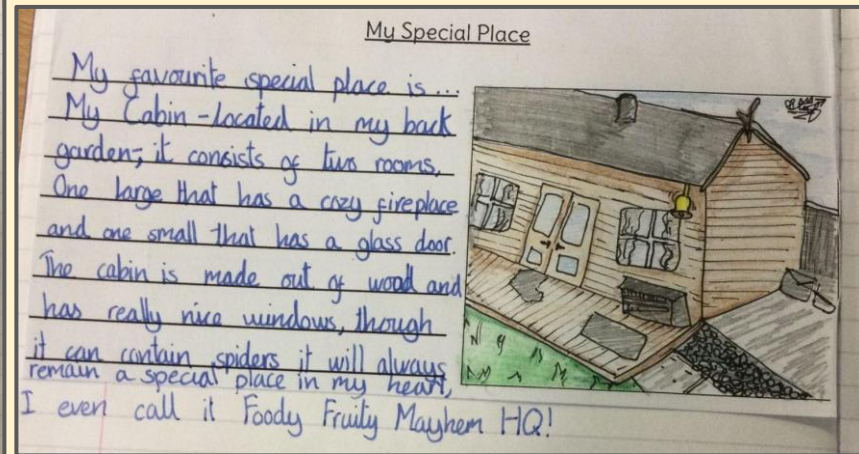 My Special Place
My favourite special place is ...
My Cabin - Located in my back
garden; it consists of two rooms.
One large that has a cozy fireplace
and one small that has a glass door.
The cabin is made out of wood and
has really nice windows, though
it can contain spiders it will always
remain a special place in my heart,
I even call it Foody Fruity Mayhem HQ!